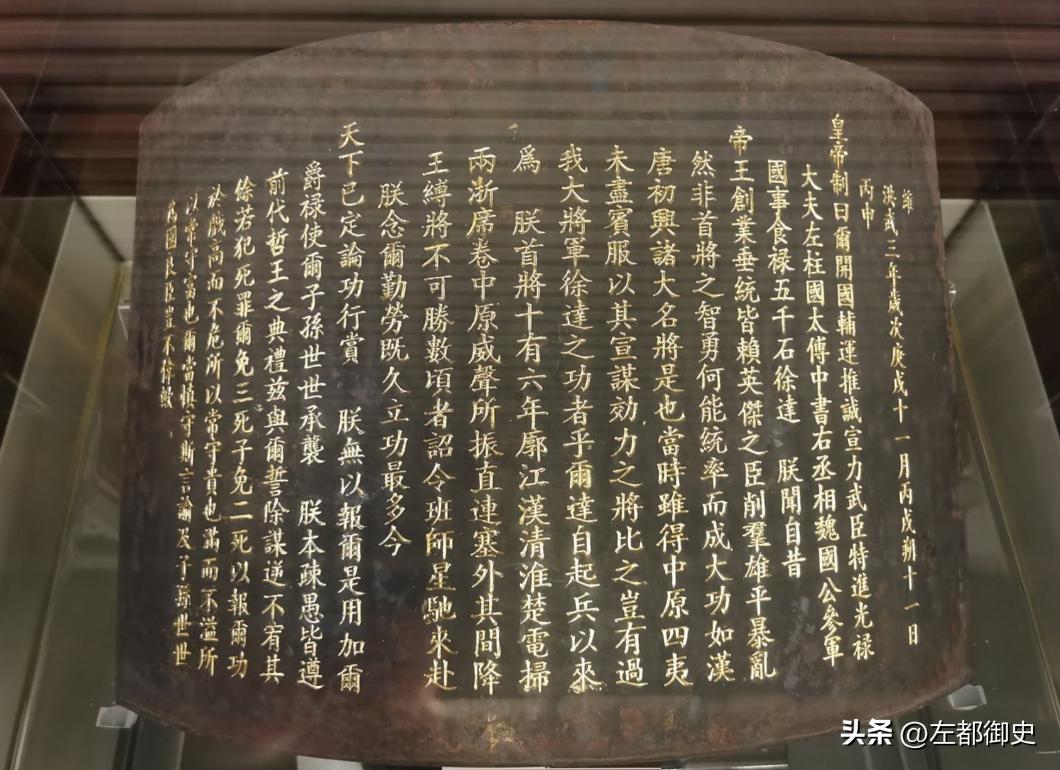 維
洪武三年歲次庚戌十一月丙戌朔十一日
丙申
皇帝制曰爾開國輔運推誠宣力武臣特進光禄
大夫左柱國太傅中書右丞相魏國公參軍
國事食禄五千石徐達 朕聞自昔
帝王創業垂統皆賴英傑之臣削羣雄平暴亂
然非首將之智勇何能統率而成大功如漢
唐初興諸大名將是也當時雖得中原四夷
未盡賓服以其宣謀効力之將比之豈有過
我大將軍徐達之功者乎爾達自起兵以來
爲 朕首將十有六年廓江漢清淮楚電掃
兩浙席卷中原威聲所振直連塞外其間降
王縛將不可勝數頃者詔令班師星馳來赴
朕念爾勤勞既久立功最多今
天下已定論功行賞 朕無以報爾是用加爾
爵禄使爾子孫世世承襲 朕本疎愚皆遵
前代哲王之典禮茲與爾誓除謀逆不宥其
餘若犯死罪爾免三死子免二死以報爾功
於戲高而不危所以常守貴也滿而不溢所
以常守富也爾當慎守斯言諭及子孫世世
爲國良臣豈不偉歟
头条 @左都御史